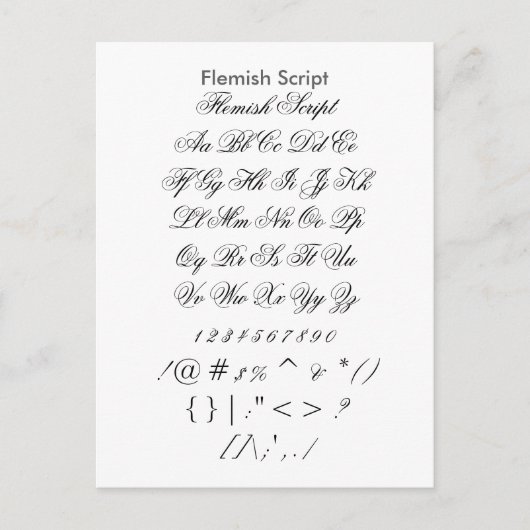 Flemish Script
Flemish Script
Aa Bb Cc Dd Ee
Ff Gg Hh Ii Jj Kk
Ll Mm Nn Oo Pp
Qq Rr Ss Tt Uu
Vv Ww Xx Yy Zz
1 2 3 4 5 6 7 8 9 0
! @ # $ % ^ & * ( )
{ } | : " < > ?
[ ] \ ; ' , . /